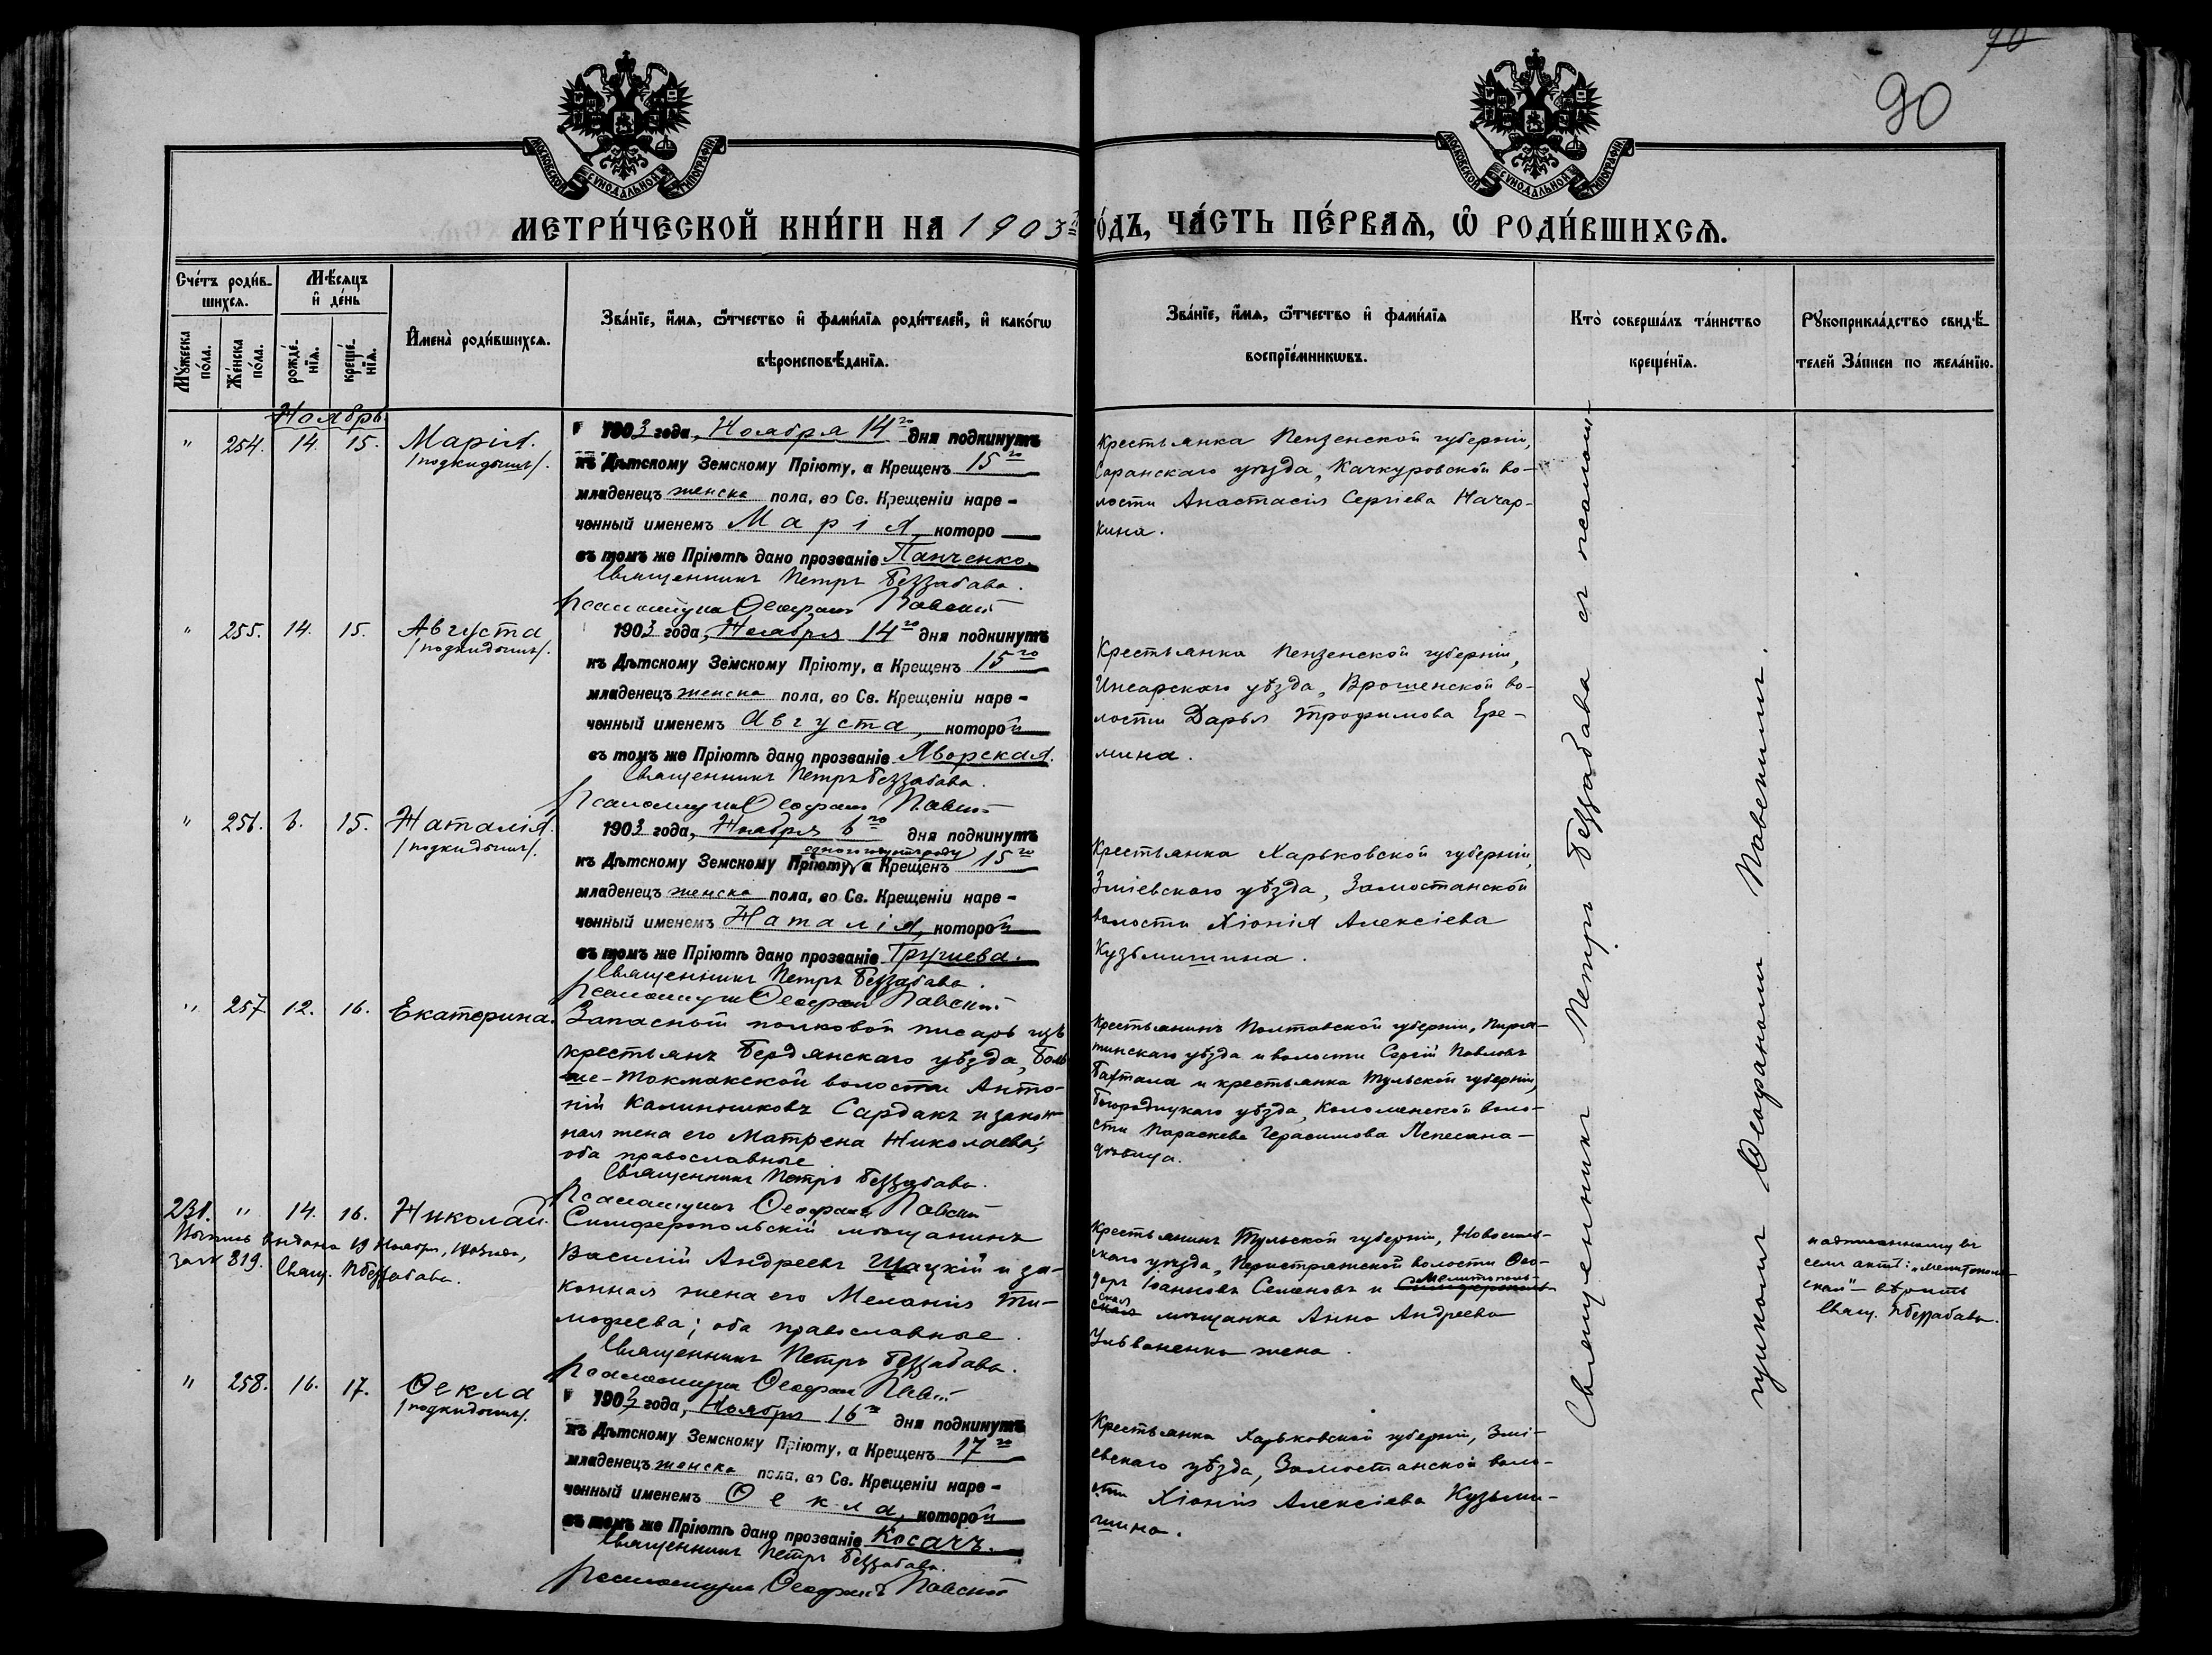 90
90
МОСКОВСКОЙ СУНОДАЛЬНОЙ ТИПОГРАФІИ
МОСКОВСКОЙ СУНОДАЛЬНОЙ ТИПОГРАФІИ
МЕТРИ́ЧЕСКОЙ КНИ́ГИ НА 1903й
ГО́ДЪ, ЧА́СТЬ ПЕ́РВАѦ, Ѡ РОДИ́ВШИХСѦ.
Сче́тъ роди́в-
шихсѧ.
Мѣ́сѧцъ
и де́нь
Му́жеска
по́ла.
Же́нска
по́ла.
рожде́-
нїѧ.
креще́-
нїѧ.
Имена̀ роди́вшихсѧ.
Зва́нїе, и́мѧ, ѻ҆́тчество и фами́лїѧ роди́телей, и како́гѡ
вѣроисповѣ́данїѧ.
Зва́нїе, и́мѧ, ѻ҆́тчество и фами́лїѧ
воспрїе́мникѡвъ.
Кто̀ соверша́лъ та́инство
креще́нїѧ.
Рꙋкоприкла́дство свидѣ́-
телей За́писи по жела́нїю.
Ноябрь.
" 254. 14. 15. Марія.
/подкидышъ/.
1903 года, Ноября 14го дня подкинутъ
къ Дѣтскому Земскому Пріюту, а Крещенъ 15го
младенецъ женска пола, во Св. Крещеніи наре-
ченный именемъ Марія, которо
въ томъ же Пріютѣ дано прозваніе Панченко.
Священникъ Петръ Беззабава.
Псаломщикъ Ѳеофанъ Павскій
Крестьянка Пензенской губерніи,
Саранскаго уѣзда, Качкуровской во-
лости Анастасія Сергіева Начар-
кина.
" 255. 14. 15. Августа
/подкидышъ/.
1903 года, Ноября 14го дня подкинутъ
къ Дѣтскому Земскому Пріюту, а Крещенъ 15го
младенецъ женска пола, во Св. Крещеніи наре-
ченный именемъ Августа, которой
въ томъ же Пріютѣ дано прозваніе Яворская.
Священникъ Петръ Беззабава.
Псаломщикъ Ѳеофанъ Павскій
Крестьянка Пензенской губерніи,
Инсарскаго уѣзда, во-
лости Дарья Трофимова Ере-
мина.
" 256. 6. 15. Наталія.
/подкидышъ/.
1903 года, Ноября 6го дня подкинутъ
къ Дѣтскому Земскому Пріюту, а Крещенъ 15го
младенецъ женска пола, во Св. Крещеніи наре-
ченный именемъ Наталія, которой
въ томъ же Пріютѣ дано прозваніе
Священникъ Петръ Беззабава.
Псаломщикъ Ѳеофанъ Павскій
Крестьянка Харьковской губерніи,
Зміевскаго уѣзда, Замостанской
волости Хіонія Алексіева
Кузьмишина.
" 257. 12. 16. Екатерина.
Запасный полковой писарь изъ
крестьянъ Бердянскаго уѣзда, Боль-
ше-Токмакской волости Анто-
ній Калинниковъ Сардакъ и закон-
ная жена его Матрена Николаева;
оба православные
Священникъ Петръ Беззабава.
Псаломщикъ Ѳеофанъ Павскій
Крестьянинъ Полтавской губерніи, Пиря-
тинскаго уѣзда и волости Сергій Павловъ
и крестьянка Тульской губерніи,
Богородицкаго уѣзда, воло-
сти Параскева Герасимова
дѣвица.
231. " 14. 16. Николай.
Выпись выдана 19 Ноября,
за № 819. Свящ. П. Беззабава.
Симферопольскій мѣщанинъ
Василій Андреевъ Щацкій и за-
конная жена его Меланія Ти-
моѳеева; оба православные.
Священникъ Петръ Беззабава.
Псаломщикъ Ѳеофанъ Павскій
Крестьянинъ Тульской губерніи, Новосиль-
скаго уѣзда, волости Ѳео-
доръ Іоанновъ Семеновъ и Мелитополь-
ская мѣщанка Анна Андреева
жена.
надписанному въ
семъ актѣ: „Мелитополь-
ская" – вѣрить
Свящ. П. Беззабава.
" 258. 16. 17. Ѳекла
/подкидышъ/.
1903 года, Ноября 16го дня подкинутъ
къ Дѣтскому Земскому Пріюту, а Крещенъ 17го
младенецъ женска пола, во Св. Крещеніи наре-
ченный именемъ Ѳекла, которой
въ томъ же Пріютѣ дано прозваніе Косачъ.
Священникъ Петръ Беззабава.
Псаломщикъ Ѳеофанъ Павскій
Крестьянка Харьковской губерніи, Змі-
евскаго уѣзда, Замостанской воло-
сти Хіонія Алексіева Кузьми-
шина.
Священникъ Петръ Беззабава съ псалом-
щикомъ Ѳеофаномъ Павскимъ.